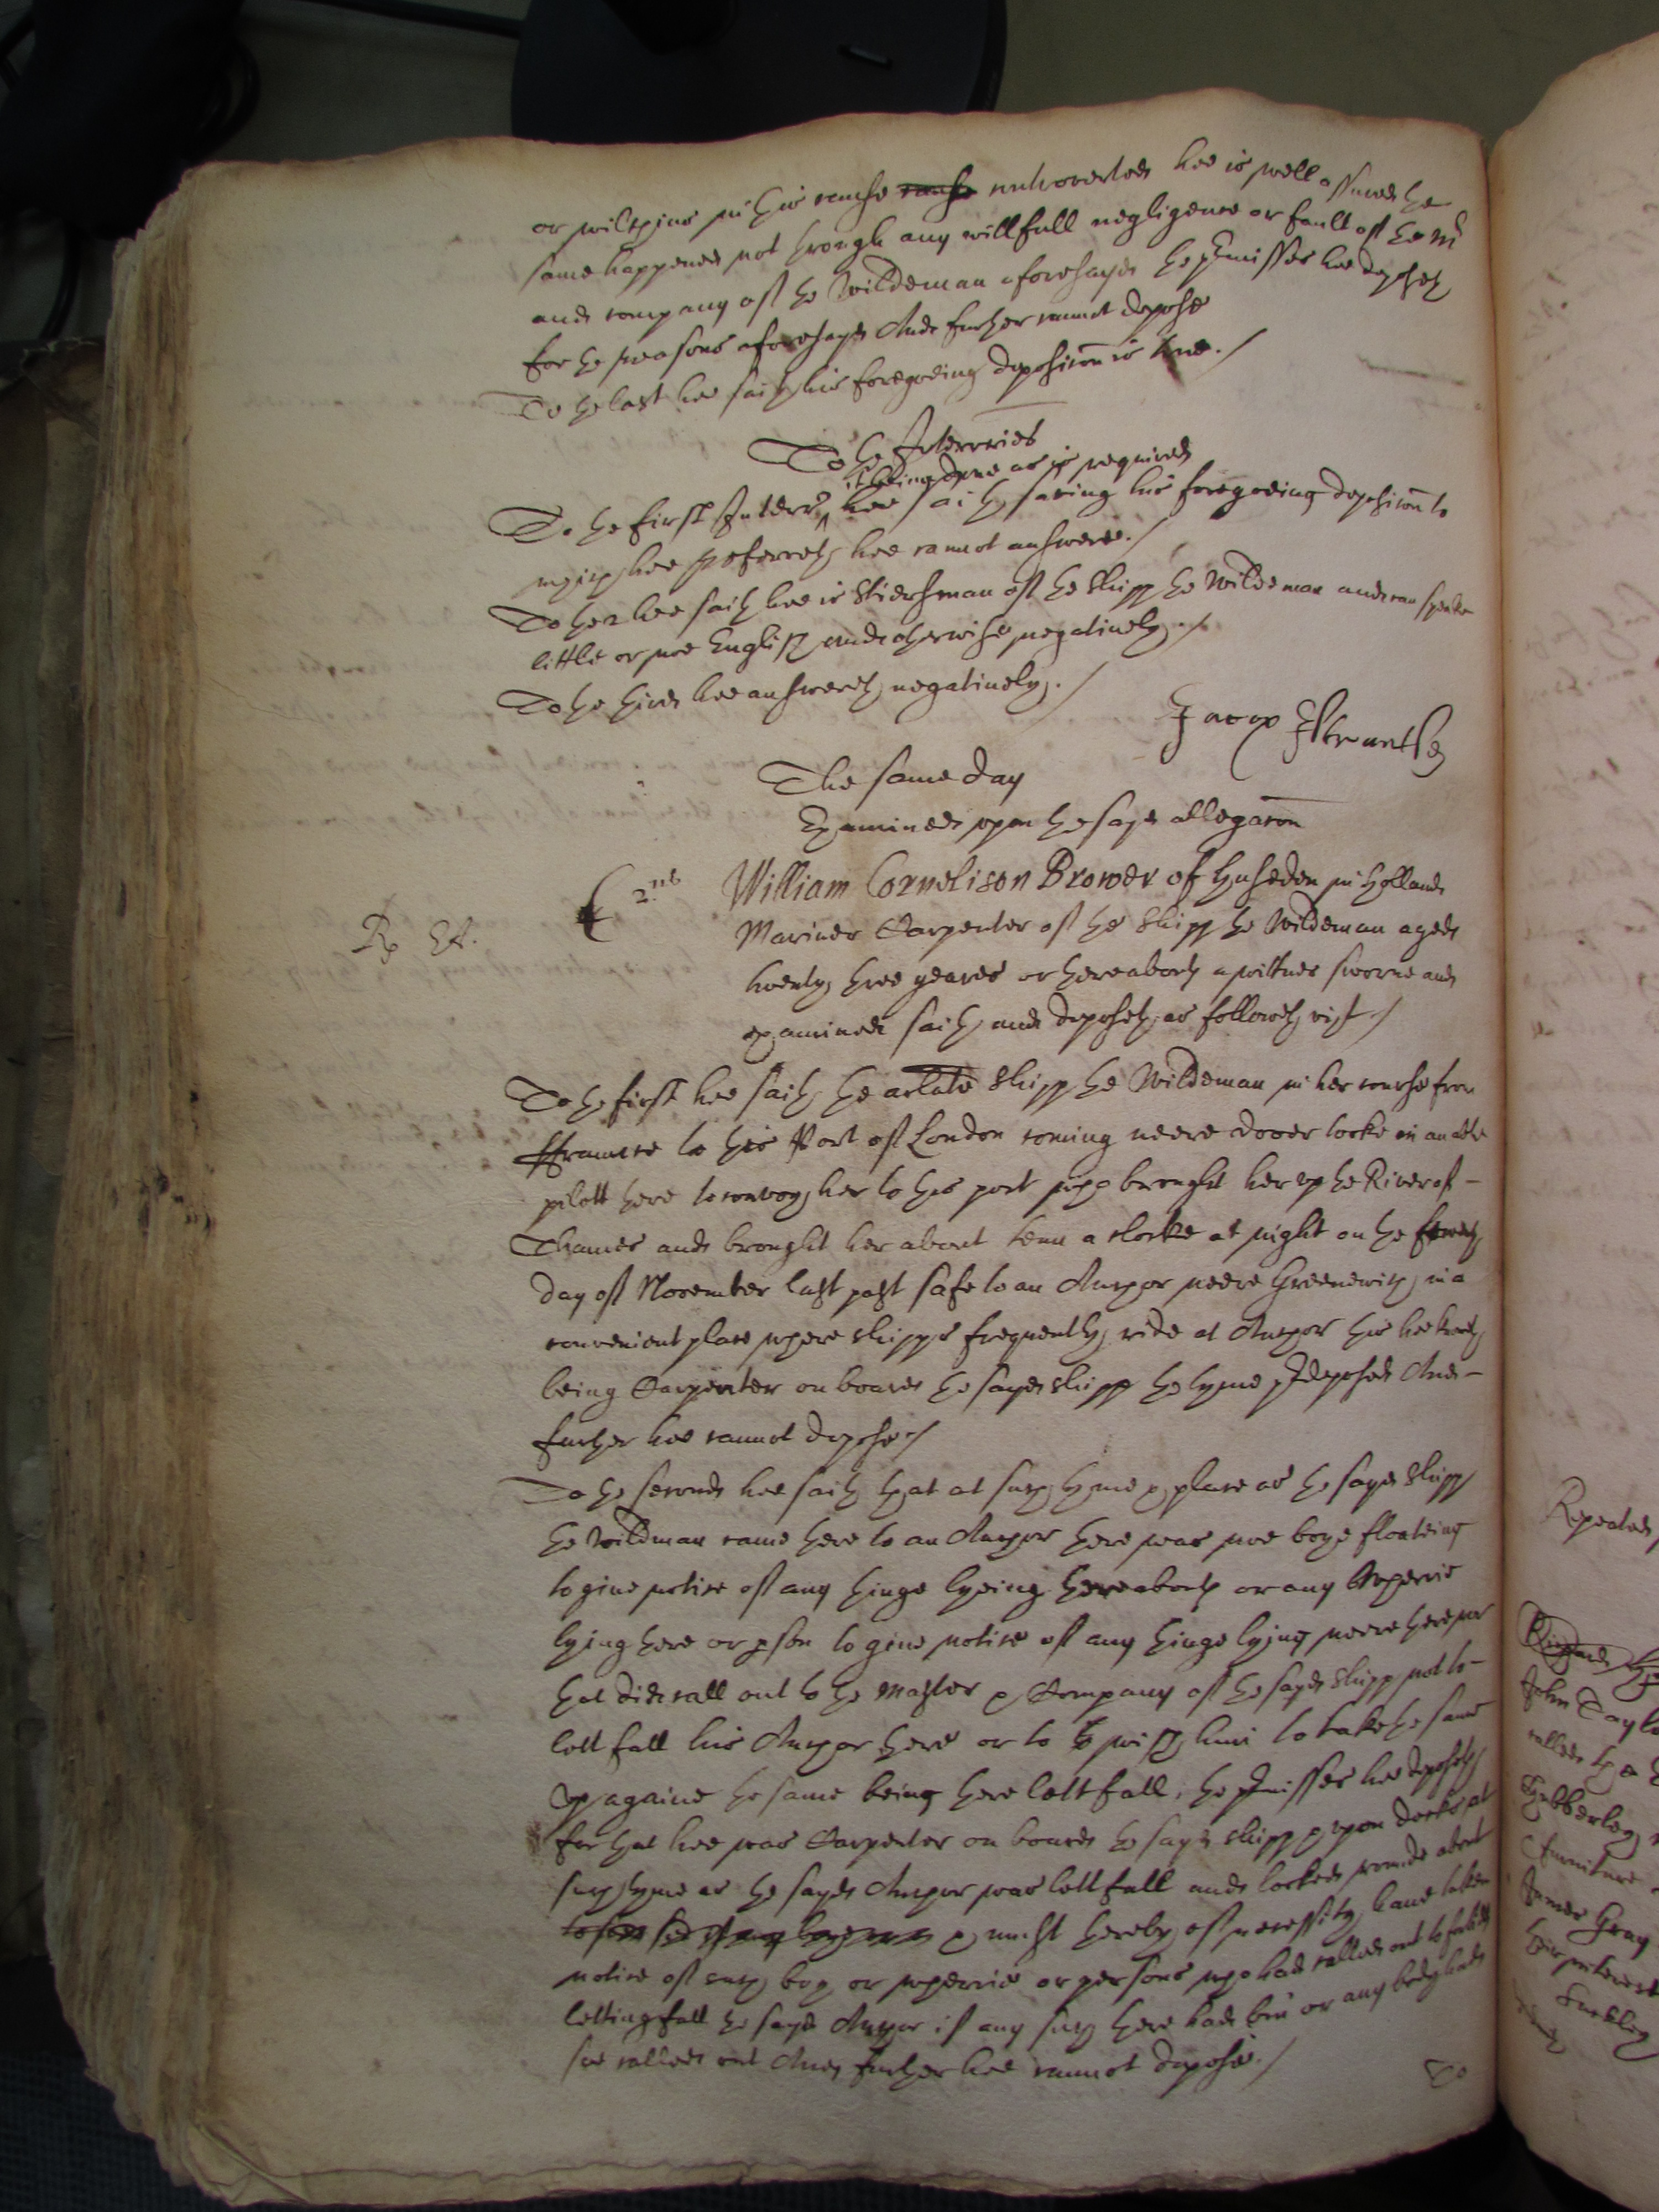 or wittnes in this cause cause controverted hee is well assured the
same happened not through any willfull negligence or fault of the Mr
and company of the Wildeman aforesayd the premisses hee deposeth
for the reasons aforesayd And further cannot depose
To the last hee saith his foregoeing deposicon is true./
To the Interries
it being done as is required
To the first Interr hee saith saving his foregoeing deposicon to
which hee referreth hee cannot answere./
To the 2 hee saith hee is Stiersman of the Shipp the Wildeman and can speake
little or noe English and otherwise negatively./
To the third hee answereth negatively./
Jacop
The same day
Examined upon the sayd allegacon
Rp EA. 2nd William Cornelison Brower of in Holland
Mariner Carpenter of the Shipp the Wildeman aged
twenty three yeares or thereabouts a wittnes sworne and
examined saith and deposeth as followeth vizt./
To the first hee saith the arlate Shipp the Wildeman in her course from
ffrance to this Port of London coming neere Dover tooke in an able
pilott there to convoy her to this port who brought her up the River of -
Thames and brought her about tenn a clocke at night on the
day of November last past safe to an Anchor neere Greenewich, in a
convenient place where shipps frequently ride at Anchor this hee knoweth
being Carpenter on board the sayd shipp the tyme predeposed And -
further hee cannot depose/
To the second hee saith that at such tyme & place as the sayd Shipp
the Wildman came there to an Anchor there was noe boye floateing
to give notice of any thinge lyeing thereabouts or any wherrie
lying there or pson to give notice of any thinge lying neere there nor
that did call out to the Master & Company of the sayd Shipp not to -
lett fall his Anchor there or to wish him to take the same
up againe the same being there lett fall, the premisses hee deposeth
for that hee was Carpenter on board the sayd shipp & upon Decks at
such tyme as the sayd Anchor was lett fall and looked round about
& must thereby of necessity have taken
notice of such boy or wherrie or persons who had called out to forbidd
letting fall the sayd Anchor if any such there had bin or any body had
soe called out And further hee cannot depose./
To
Repeated
Richard
John Taylo
called the
Furniture
James Gray
their interest
Suckley